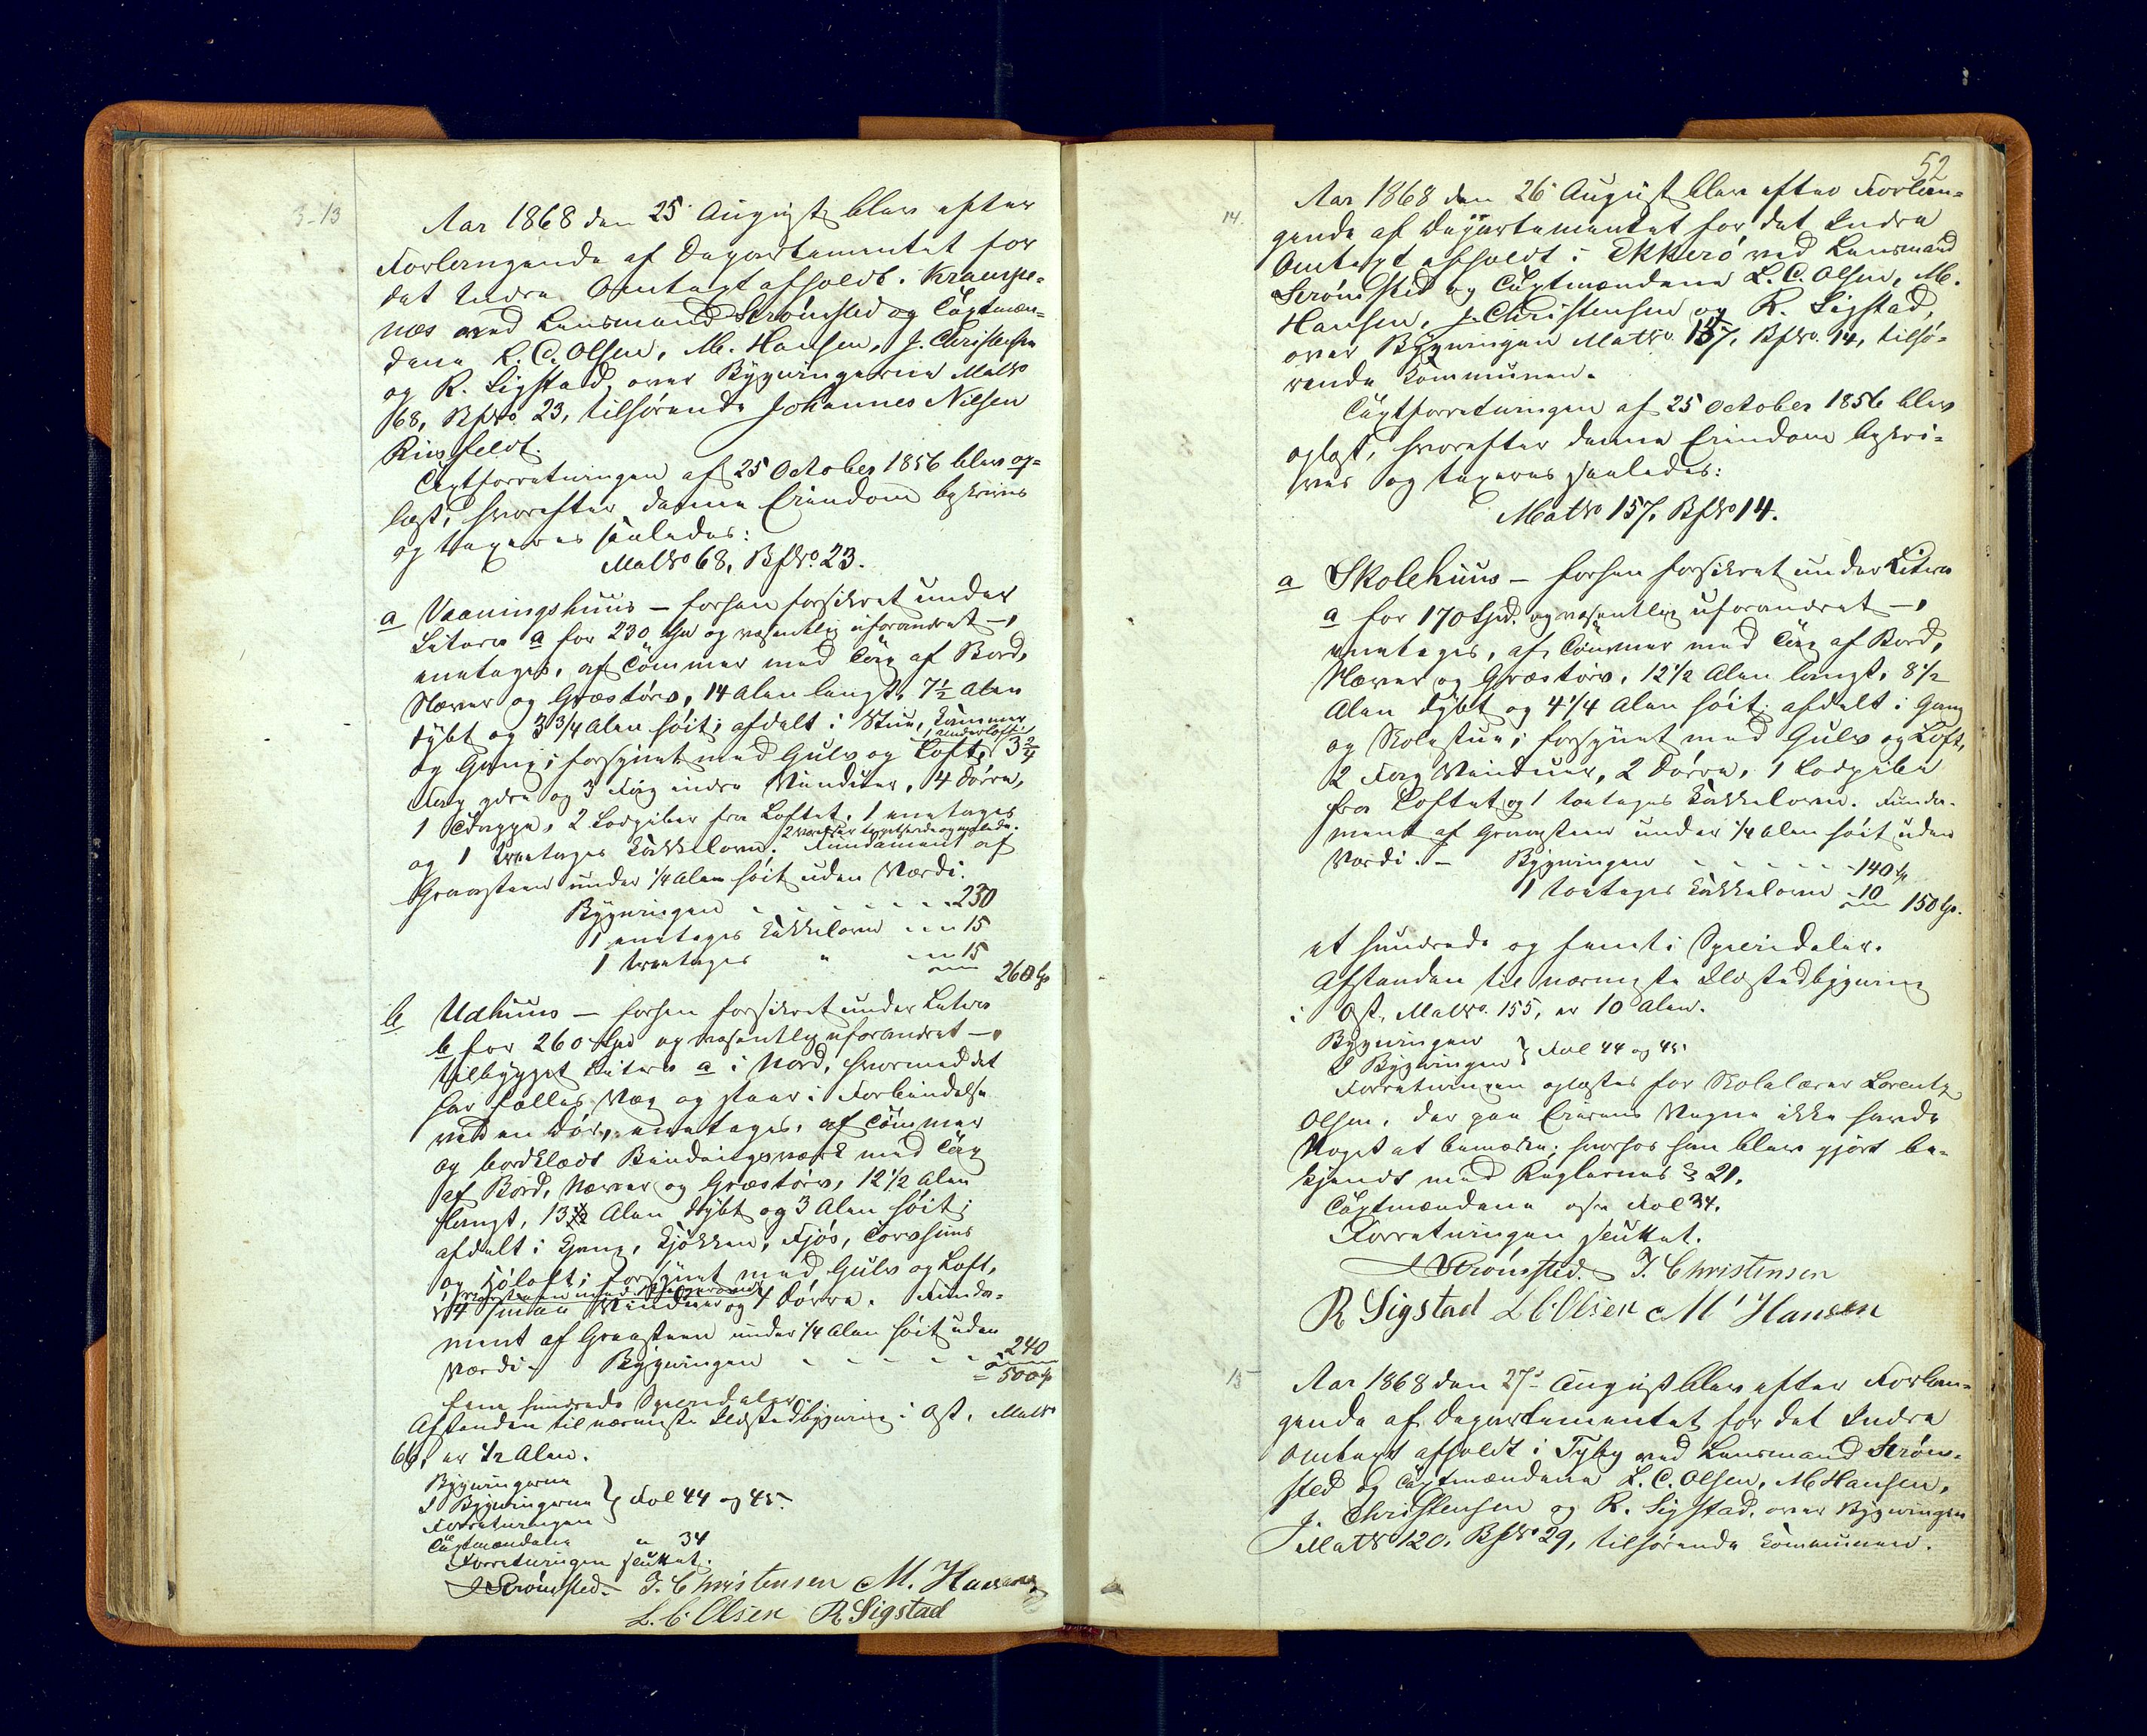 3-13
Aar 1868 den 25. August blev efter
Forlangende af Departementet for
det Indre Omtaxt afholdt i Krampe-
næs ved Lensmand Strömsted og Taxtmæn-
dene L. C. Olsen, M. Hansen, J. Christensen
og R. Sigstad, over Bygningerne Matr
68, Bfdr. 23, tilhørende Johannes Nilsen
Taxtforretningen af 25 October 1856 blev op-
læst, hvorefter denne Eiendom beskrives
og taxeres saaledes:
Matr 68, Bfdr. 23.
a Vaaningshuus – forhen forsikret under
Litera a for 230 Spd og væsentlig uforandret –,
eenetages, af Tömmer med Tag af Bord,
Næver og Græstörv, 14 Alen langt, 7½ Alen
dybt og 3¾ Alen höit; afdelt i Stue, Kammer
og Gang; forsynet med Gulv og Loft, 1 Underloft 3 2/4
Fag ydre og 3 Fag indre Vinduer, 4 Dörre,
1 Trappe, 2 Lodpiber fra Loftet, 1 eenetages
og 1 treetages Kakkelovn. 2 Værelser tapetserede og malede. Fundament af
Graasteen under ¼ Alen höit uden Værdi.
Bygningen - - - - - - 230
1 eenetages Kakkelovn - - - 15
1 treetages " - - - 15
260 Sp
b Udhuus – forhen forsikret under Litera
b for 260 Spd og væsentlig uforandret –,
tilbygget Litera a i Nord, hvormed det
har fælles Væg og staar i Forbindelse
ved en Dör, eenetages, af Tömmer
og bordklædt Bindingsværk med Tag
af Bord, Næver og Græstörv, 12½ Alen
langt, 13 Alen dybt og 3 Alen höit;
afdelt i Gang, Kjökken, Fjös, Torvhuus
og Höloft; forsynet med Gulv og Loft,
1 Skorsteen med
4 smaa Vinduer og 7 Dörre. Funda-
ment af Graasteen under ¼ Alen höit uden
Værdi – Bygningen - - - - - 240
= 500 Sp
fem hundrede Speciedaler.
Afstanden til nærmeste Ildstedbygning i Øst, Matr
66, er ½ Alen.
Bygningerne
I Bygningerne } Fol 44 og 45.
Forretningen
Taxtmændene " 34
Forretningen sluttet.
Strömsted. J. Christensen M. Hansen
L. C. Olsen R Sigstad
52
14.
Aar 1868 den 26 August blev efter Forlan-
gende af Departementet for det Indre
Omtaxt afholdt i Ekkerö ved Lensmand
Strömsted og Taxtmændene L. C. Olsen, M.
Hansen, J. Christensen og R. Sigstad,
over Bygningen Matr. 157, Bfdr. 14, tilhö-
rende Kommunen.
Taxtforretningen af 25 October 1856 blev
oplæst, hvorefter denne Eiendom beskri-
ves og taxeres saaledes:
Matr 157, Bfdr 14.
a Skolehuus – forhen forsikret under Litera
a for 170 Spd. og væsentlig uforandret –,
eenetages, af Tömmer med Tag af Bord,
Næver og Græstörv, 12½ Alen langt, 8½
Alen dybt og 4¼ Alen höit; afdelt i Gang
og Skolestue; forsynet med Gulv og Loft,
2 Fag Vinduer, 2 Dörre, 1 Lodpibe
fra Loftet og 1 toetages Kakkelovn. Funda-
ment af Graasteen under ¼ Alen höit uden
Værdi. – Bygningen - - - - - - 140 Sp
1 toetages Kakkelovn - 10 150 Sp.
et hundrede og femti Speciedaler.
Afstanden til nærmeste Ildstedbygning
i Øst, Matr. 155, er 10 Alen.
Bygningen
I Bygningen } Fol 44 og 45.
Forretningen oplæstes for Skolelærer Lorentz
Olsen, der paa Eierens Vegne ikke havde
Noget at bemærke; hvorhos han blev gjört be-
kjendt med Reglernes § 21.
Taxtmændene Fol 34.
Forretningen sluttet.
Strömsted. J. Christensen
R Sigstad L. C. Olsen M Hansen
15
Aar 1868 den 27. August blev efter Forlan-
gende af Departementet for det Indre
Omtaxt afholdt i Tyby ved Lensmand Ström-
sted og Taxtmændene L. C. Olsen, M Hansen,
J. Christensen og R. Sigstad, over Bygningen
Matr 120, Bfdr 29, tilhörende Kommunen.